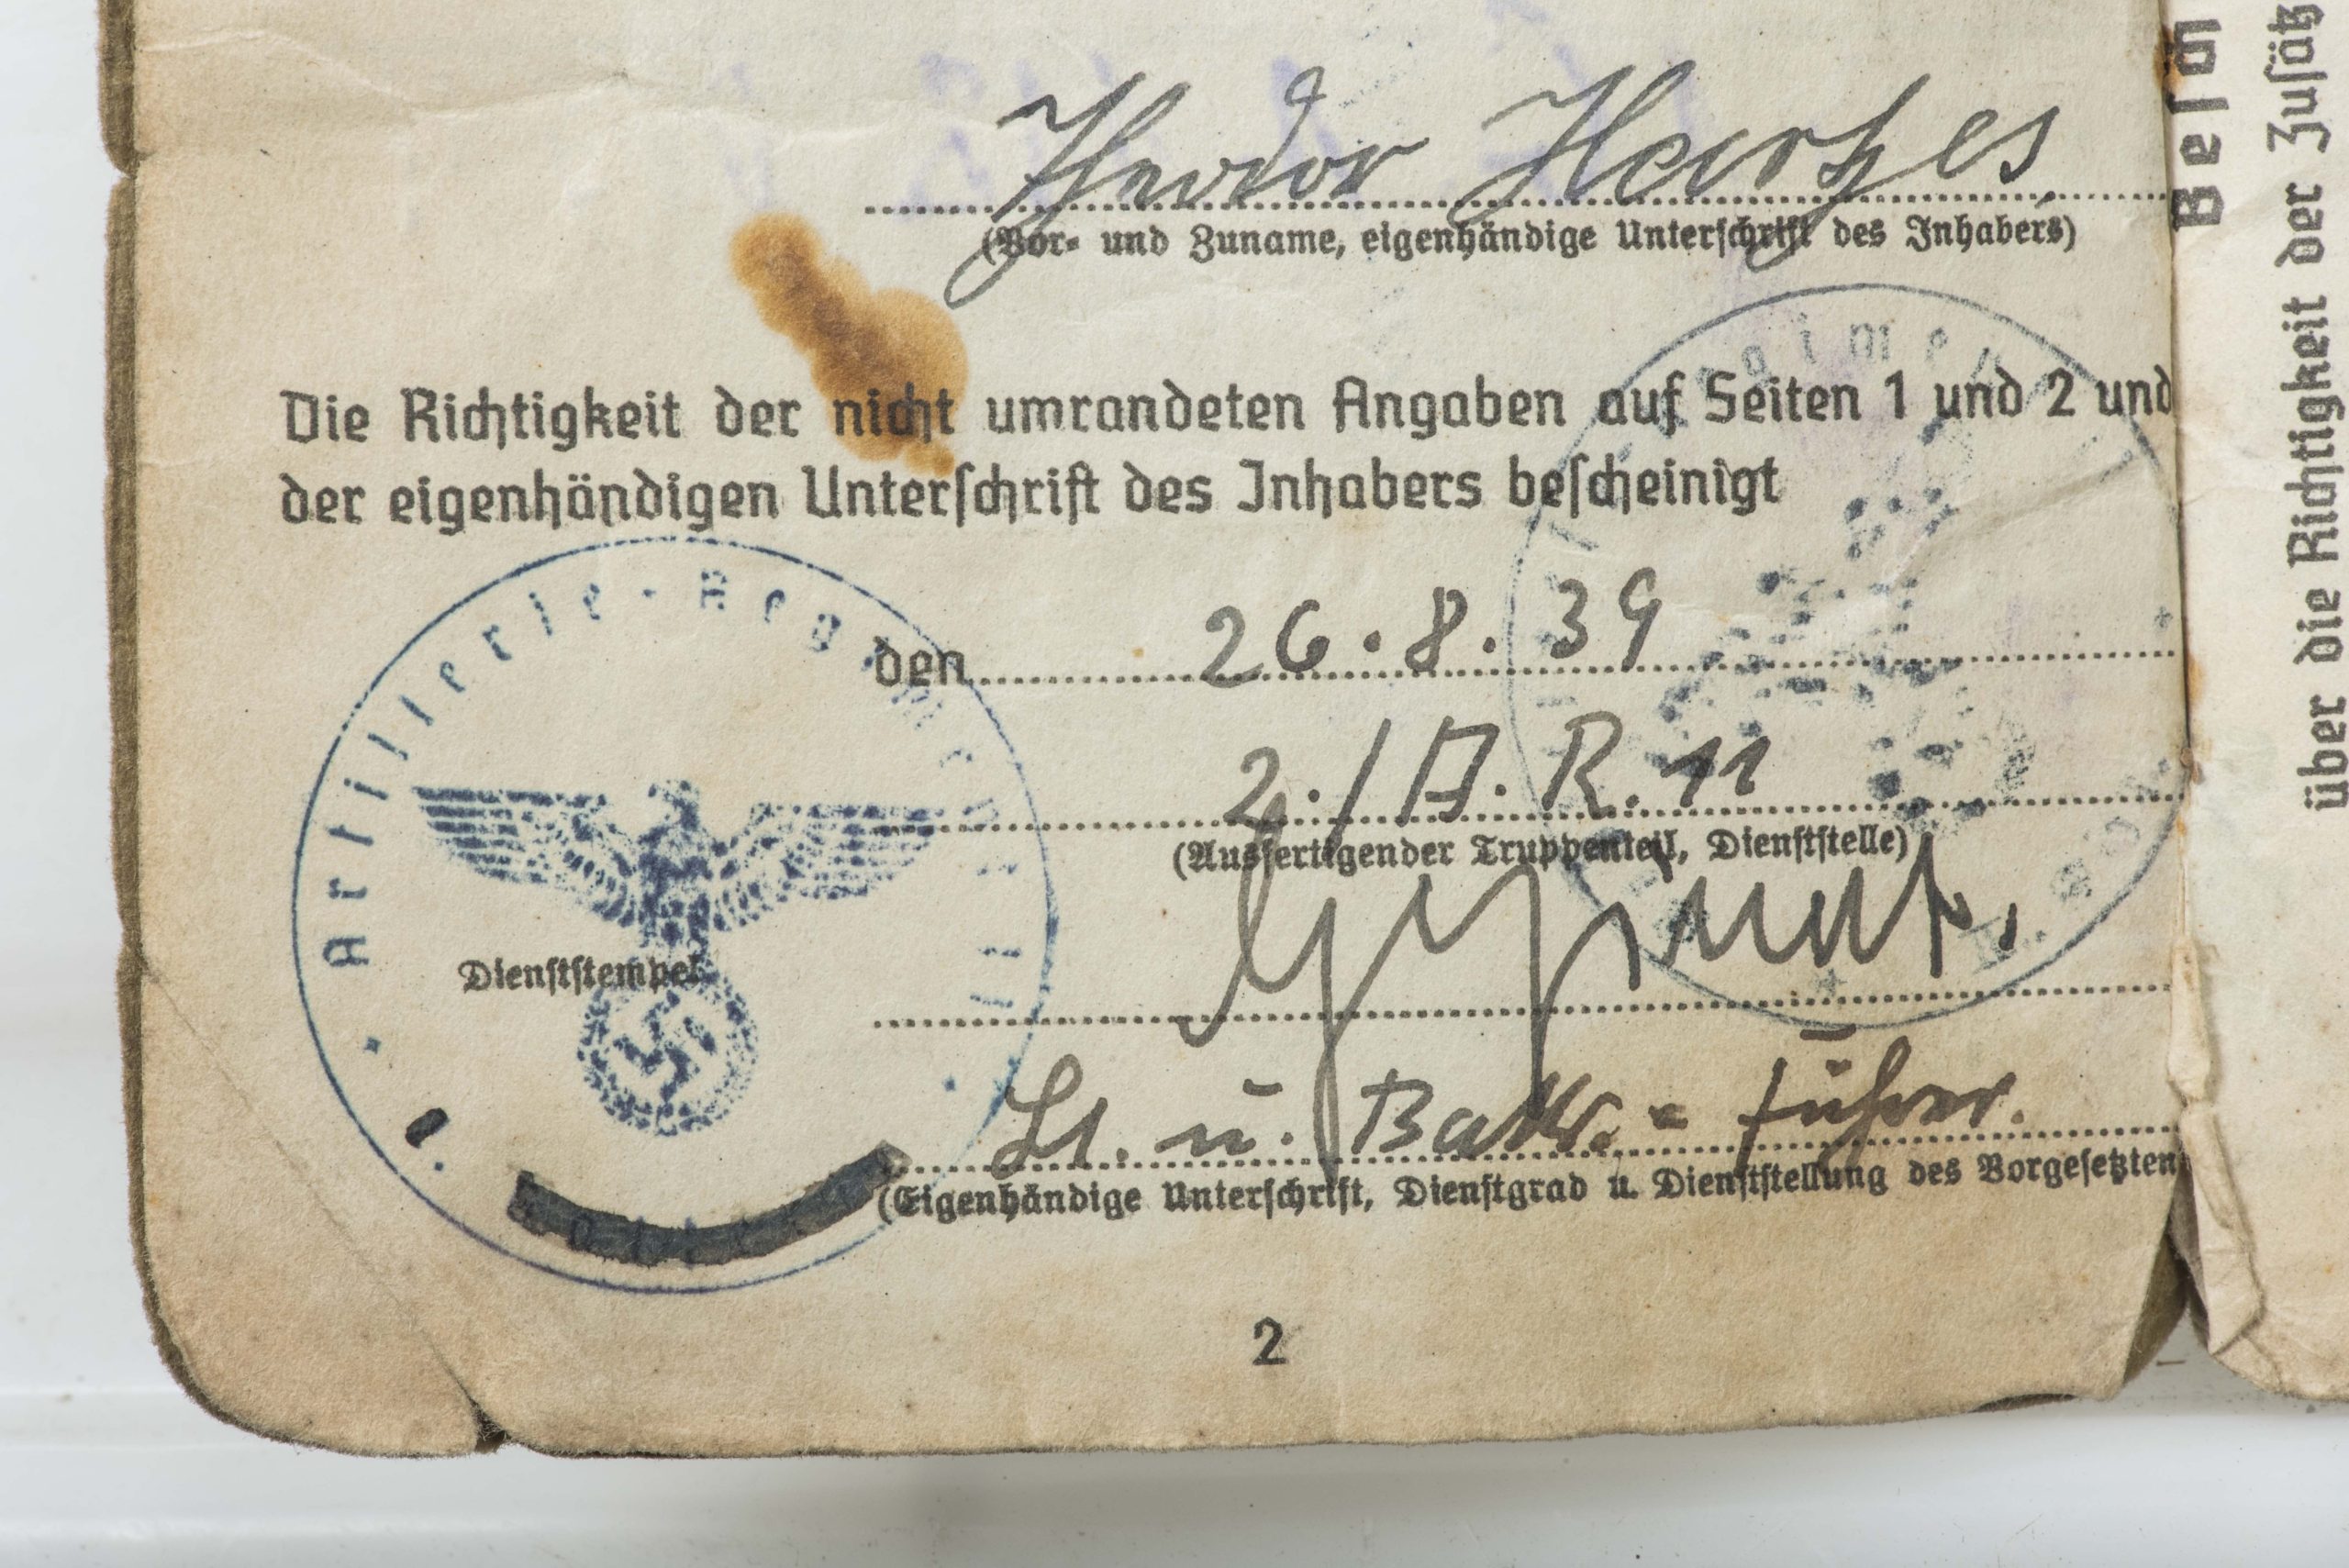 Theodor Harzes
(Vor- und Zuname, eigenhändige Unterschrift des Inhabers)
Die Richtigkeit der nicht umrandeten Angaben auf Seiten 1 und 2 und
der eigenhändigen Unterschrift des Inhabers bescheinigt
Artillerie-Regiment 11
den 26.8.39
2./A.R.11
(Ausfertigender Truppenteil, Dienststelle)
Dienststempel
Lt. u. Battr.-führer.
(Eigenhändige Unterschrift, Dienstgrad u. Dienststellung des Vorgesetzten
2
Besch
über die Richtigkeit der Zusätz